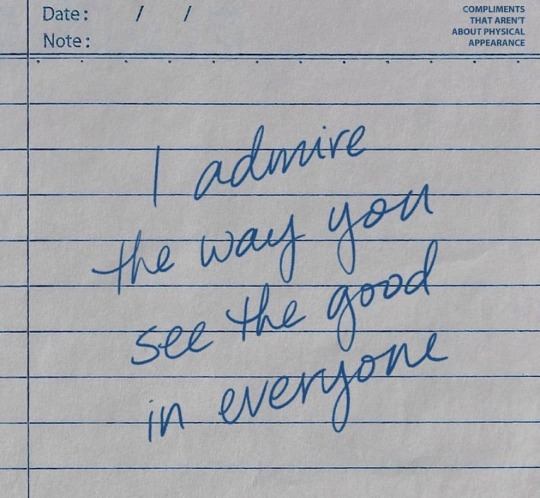 Date: / /
Note:
COMPLIMENTS
THAT AREN'T
ABOUT PHYSICAL
APPEARANCE
I admire
the way you
see the good
in everyone